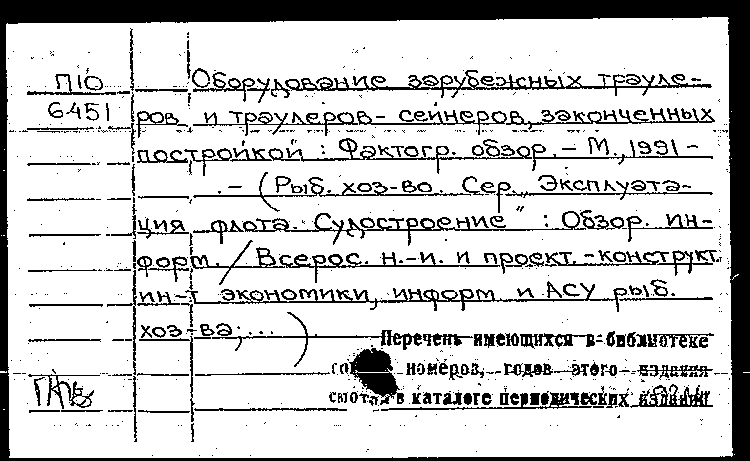 П10
6451
Оборудование зарубежных трауле-
ров и траулеров-сейнеров, законченных
постройкой : Фактогр. обзор. - М., 1991 -
. - (Рыб. хоз-во. Сер. „Эксплуата-
ция флота. Судостроение" : Обзор. ин-
форм. / Всерос. н.-и. и проект.-конструкт.
ин-т экономики, информ. и АСУ рыб.
хоз-ва; ...)
Перечень имеющихся в библиотеке
номеров, годов этого издания
в каталоге периодических изданий